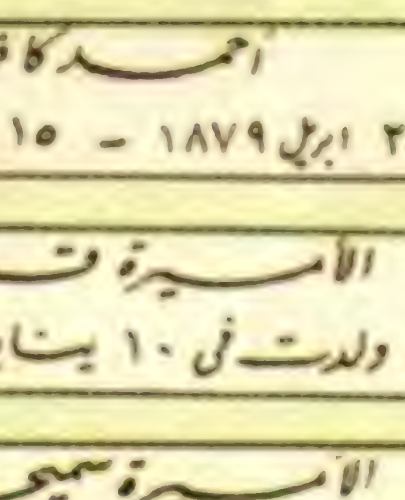 أحمد كا
٢ ابريل ١٨٧٩ - ١٥
الأميرة
ولدت فى ١٠ ينا
الأميرة سميح